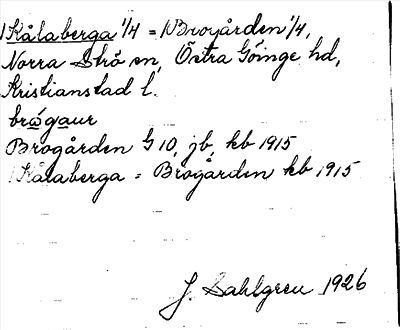 Kålaberga 1/4 = Brogården 1/4,
Norra Strö sn, Östra Göinge hd,
Kristianstad l.
brǿgaur
Brogården G 10, jb, kb 1915
Kålaberga = Brogården kb 1915
J. Sahlgren 1926